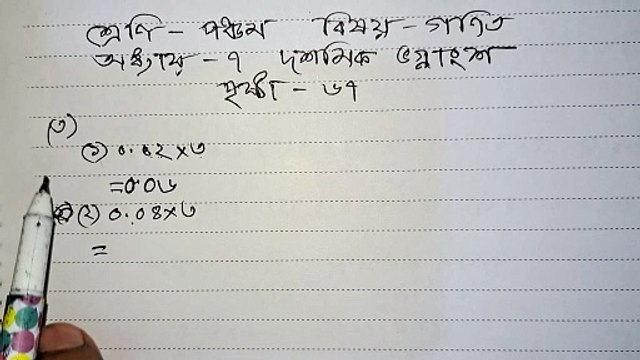 শ্রেণি - পঞ্চম বিষয় - গণিত
অধ্যায় - ৭ দশমিক ভগ্নাংশ
পৃষ্ঠা - ৬৭
(৩)
(১) ০.০২×৩
=০.০৬
(২) ০.০৪×৩
=